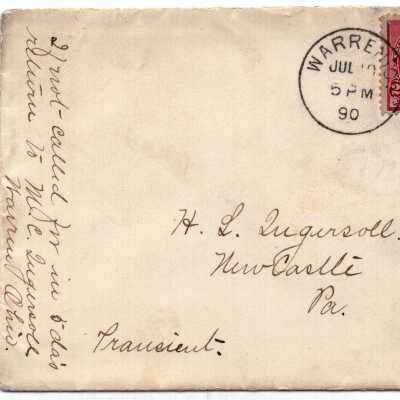 If not called for in 5 da's
return to M. C. Ingersoll
Warren, Ohio.
WARREN
JUL 10
5 PM
90
H. L. Ingersoll.
New Castle
Pa.
Transient.